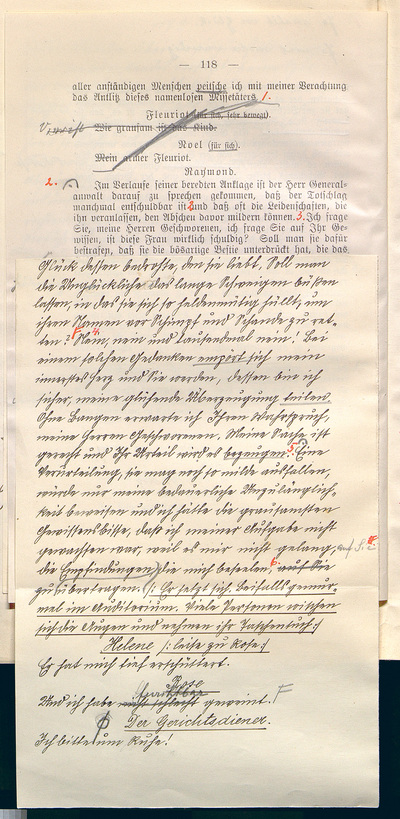 — 118 —
aller anständigen Menschen peitsche ich mit meiner Verachtung
das Antlitz dieses namenlosen Missetäters. 1.
Fleuriot (für sich, sehr bewegt).
Wie grausam ist das Kind.
Noel (für sich).
Mein armer Fleuriot.
Raymond.
2. Im Verlaufe seiner beredten Anklage ist der Herr General-
anwalt darauf zu sprechen gekommen, daß der Totschlag
manchmal entschuldbar ist und daß oft die Leidenschaften, die
ihn veranlassen, den Abscheu davor mildern können. 3. Ich frage
Sie, meine Herren Geschworenen, ich frage Sie auf Ihr Ge-
wissen, ist diese Frau wirklich schuldig? Soll man sie dafür
bestrafen, daß sie die bösartige Bestie unterdrückt hat, die das
Glück dessen bedrohte, den sie liebt. Soll man
die Unglückliche das lange Schweigen büßen
lassen, in das sie sich so heldenmütig hüllt, um
ihren Namen vor Schimpf und Schande zu ret-
ten? 4. Nein, nein und tausendmal nein! Bei
einem solchen Gedanken empört sich mein
innerstes Herz und Sie werden, dessen bin ich
sicher, meine glühende Überzeugung teilen.
Ohne Bangen erwarte ich Ihren Wahrspruch,
meine Herren Geschworenen. Meine Sache ist
gerecht und Ihr Urteil wird es bezeugen. 5. Eine
Verurteilung, sie mag noch so milde ausfallen,
würde nur meine bedauerliche Unzulänglich-
keit beweisen und ich hätte die grausamsten
Gewissensbisse, daß ich meiner Aufgabe nicht
gewachsen war, weil es mir nicht gelang,
die Empfindungen, die mich beseelen, 6. auf Sie
zu übertragen. (: Er setzt sich. Beifallsgemur-
mel im Auditorium. Viele Personen wischen
sich die Augen und nehmen ihr Taschentuch :)
Helene (: leise zu Rose :)
Er hat mich tief erschüttert.
Rose
Und ich habe nicht schlecht geweint.
Der Gerichtsdiener.
Ich bitte um Ruhe!